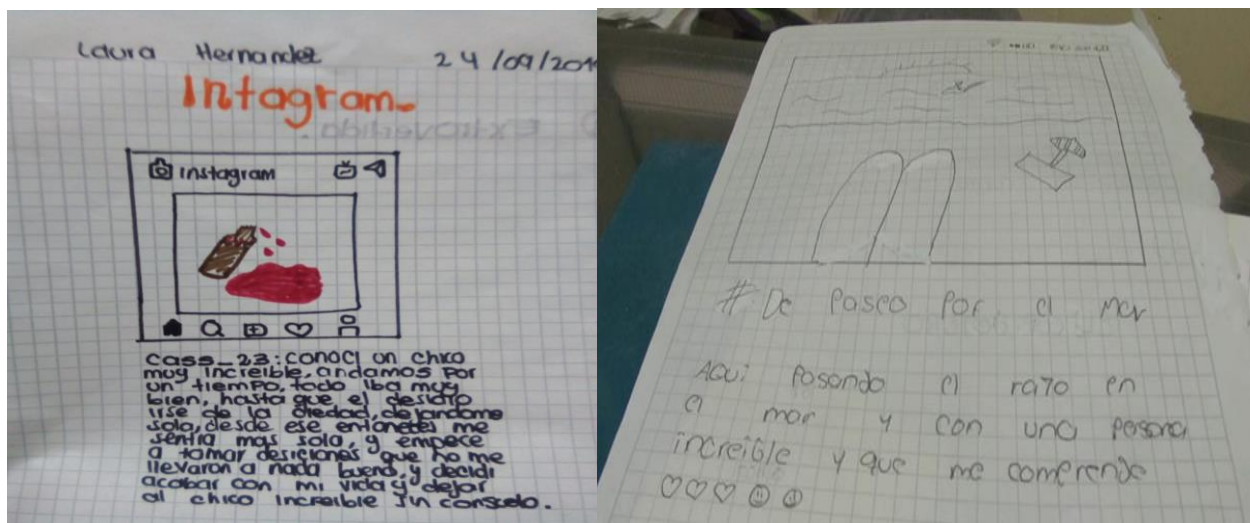 Laura Hernandez 24/09/201
Intagram-
Extrovertida
instagram
Cass_23: conoci un chico
muy increible, andamos por
un tiempo, todo iba muy
bien, hasta que el desidio
irse de la ciedad, dejandome
sola, desde ese entonces me
sentia mas sola, y empece
a tomar desiciones que no me
llevaron a nada bueno, y decidi
acabar con mi vida y dejar
al chico increible sin consuelo.
# De Paseo Por el mar
Aqui Pasando el rato en
el mar y con una persona
increible y que me comprende